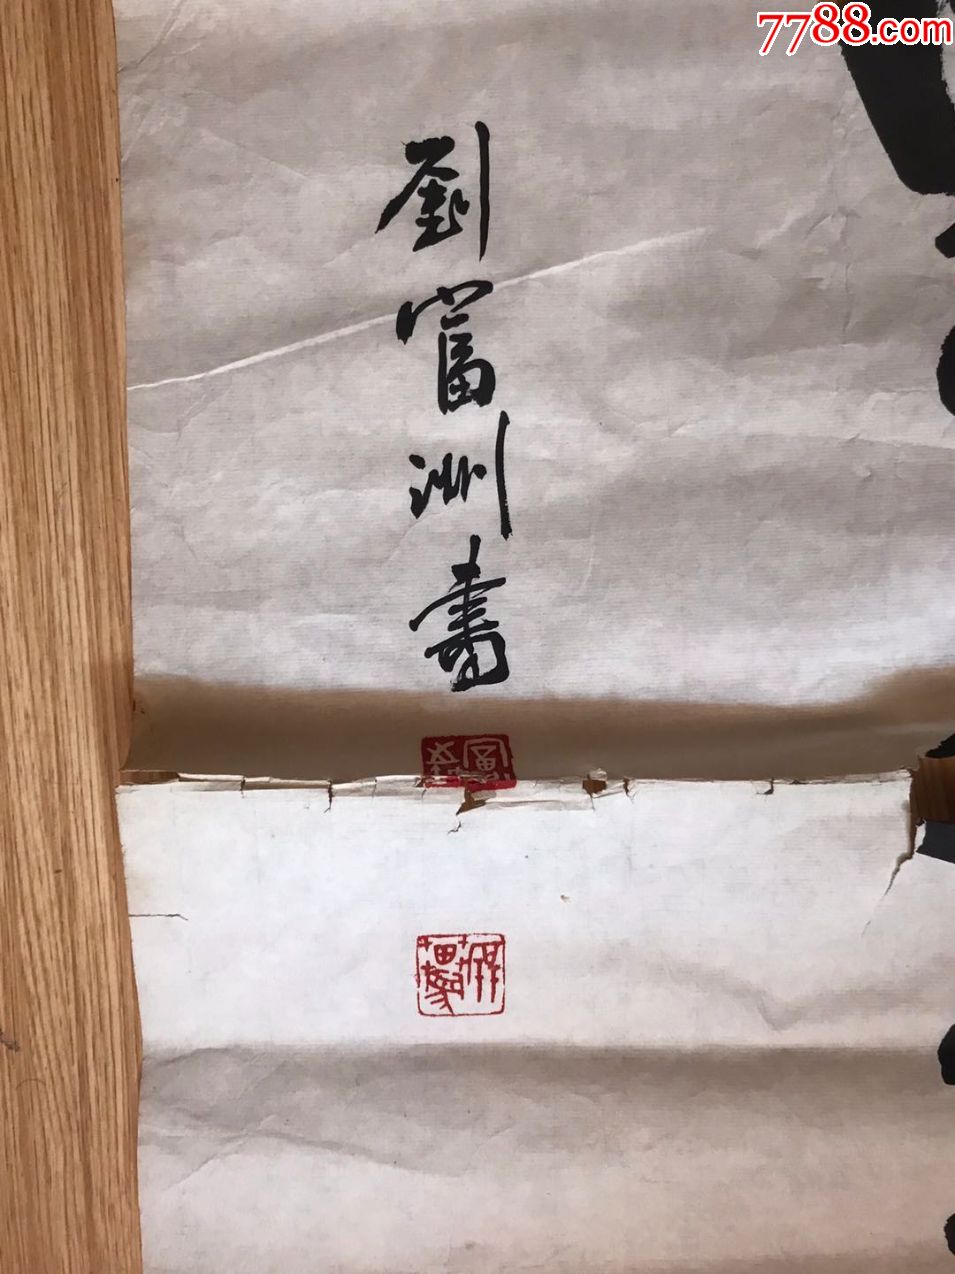 7788.com
劉富洲書